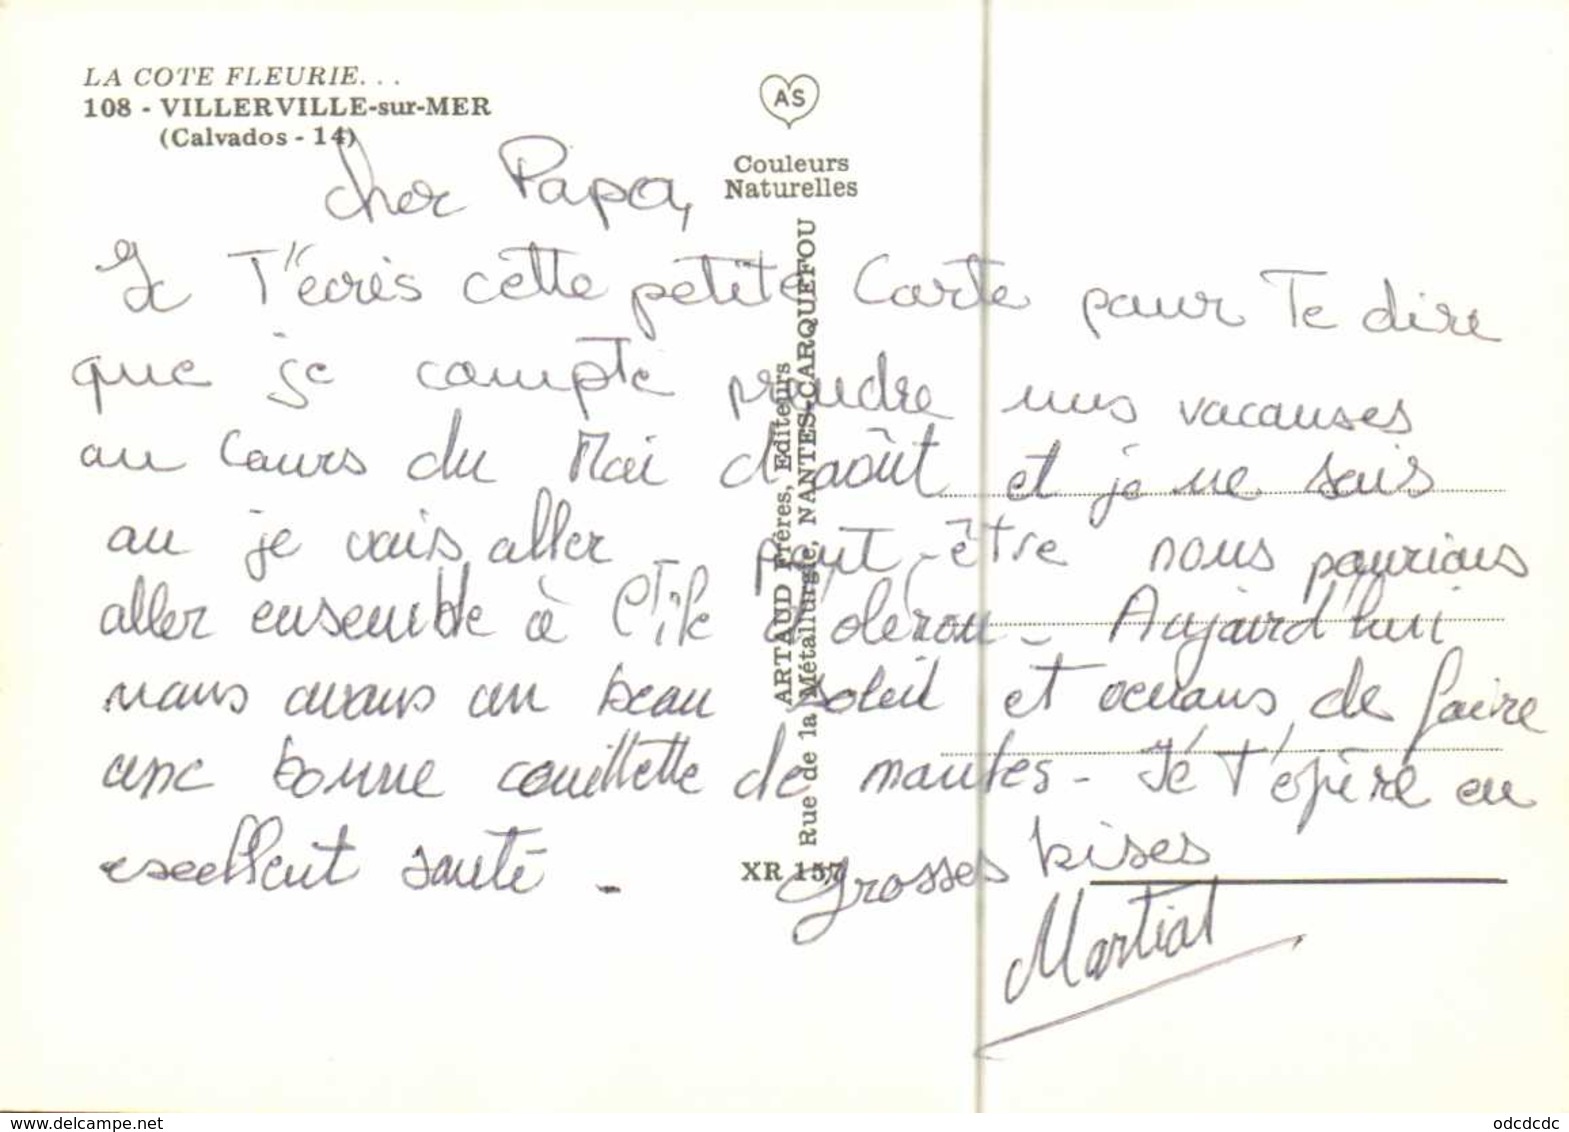 LA COTE FLEURIE...
108 - VILLERVILLE-sur-MER
(Calvados - 14)
AS
Couleurs
Naturelles
ARTAUD Frères, Editeurs
Rue de la Métallurgie, NANTES-CARQUEFOU
XR 157
cher Papa,
Je T'écris cette petite Carte pour Te dire
que je compte prendre mes vacanses
au Cours du Moi d'août et je ne sais
ou je vais aller peut-être nous pourions
aller ensemble à l'île d'oléron - Aujourd'hui
nous avons un beau soleil et de faire
une bonne couillette de - Jé t'éspère en
excellent santé - grosses bises
Martial
www.delcampe.net
odcdcdc